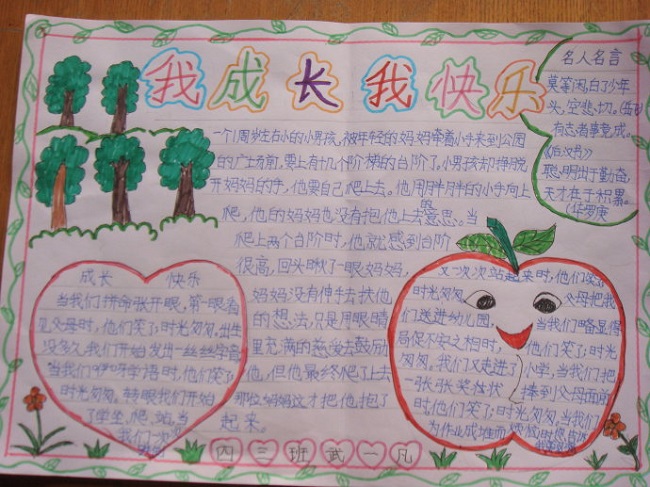 我成长我快乐
名人名言
莫等闲,白了少年
头,空悲切。(岳飞)
有志者事竟成。
《后汉书》
聪明出于勤奋,
天才在于积累。
(华罗庚
一个1周岁左右的小男孩,被年轻的妈妈牵着小手来到公园
的广场前,要上有十几个阶梯的台阶了,小男孩却挣脱
开妈妈的手,他要自己爬上去。他用胖胖的小手向上
爬,他的妈妈也没有抱他上去的意思。当
爬上两个台阶时,他就感到台阶
很高,回头瞅了一眼妈妈,
妈妈没有伸手去扶他
的想法,只是用眼睛
里充满的慈爱去鼓励
他,但他最终爬了上去
那位妈妈这才把他抱了
起来。
成长 快乐
当我们拼命张开眼,第一眼看
见父母时,他们笑了;时光匆匆,出生
没多久,我们开始发出一丝丝学音
当我们咿呀学语时,他们笑了;
时光匆匆。转眼我们开始
了学坐、爬、站,当
我们一次
又一次次站起来时,他们笑了
时光匆匆 父母把我
们送进幼儿园 当我们略显得
局促不安之相时, 他们笑了;时光
匆匆。我们又走进了 小学,当我们把
一张张奖状 捧到父母面前
时,他们笑了;时光匆匆。当我们
为作业成堆而烦恼时
四三班武一凡